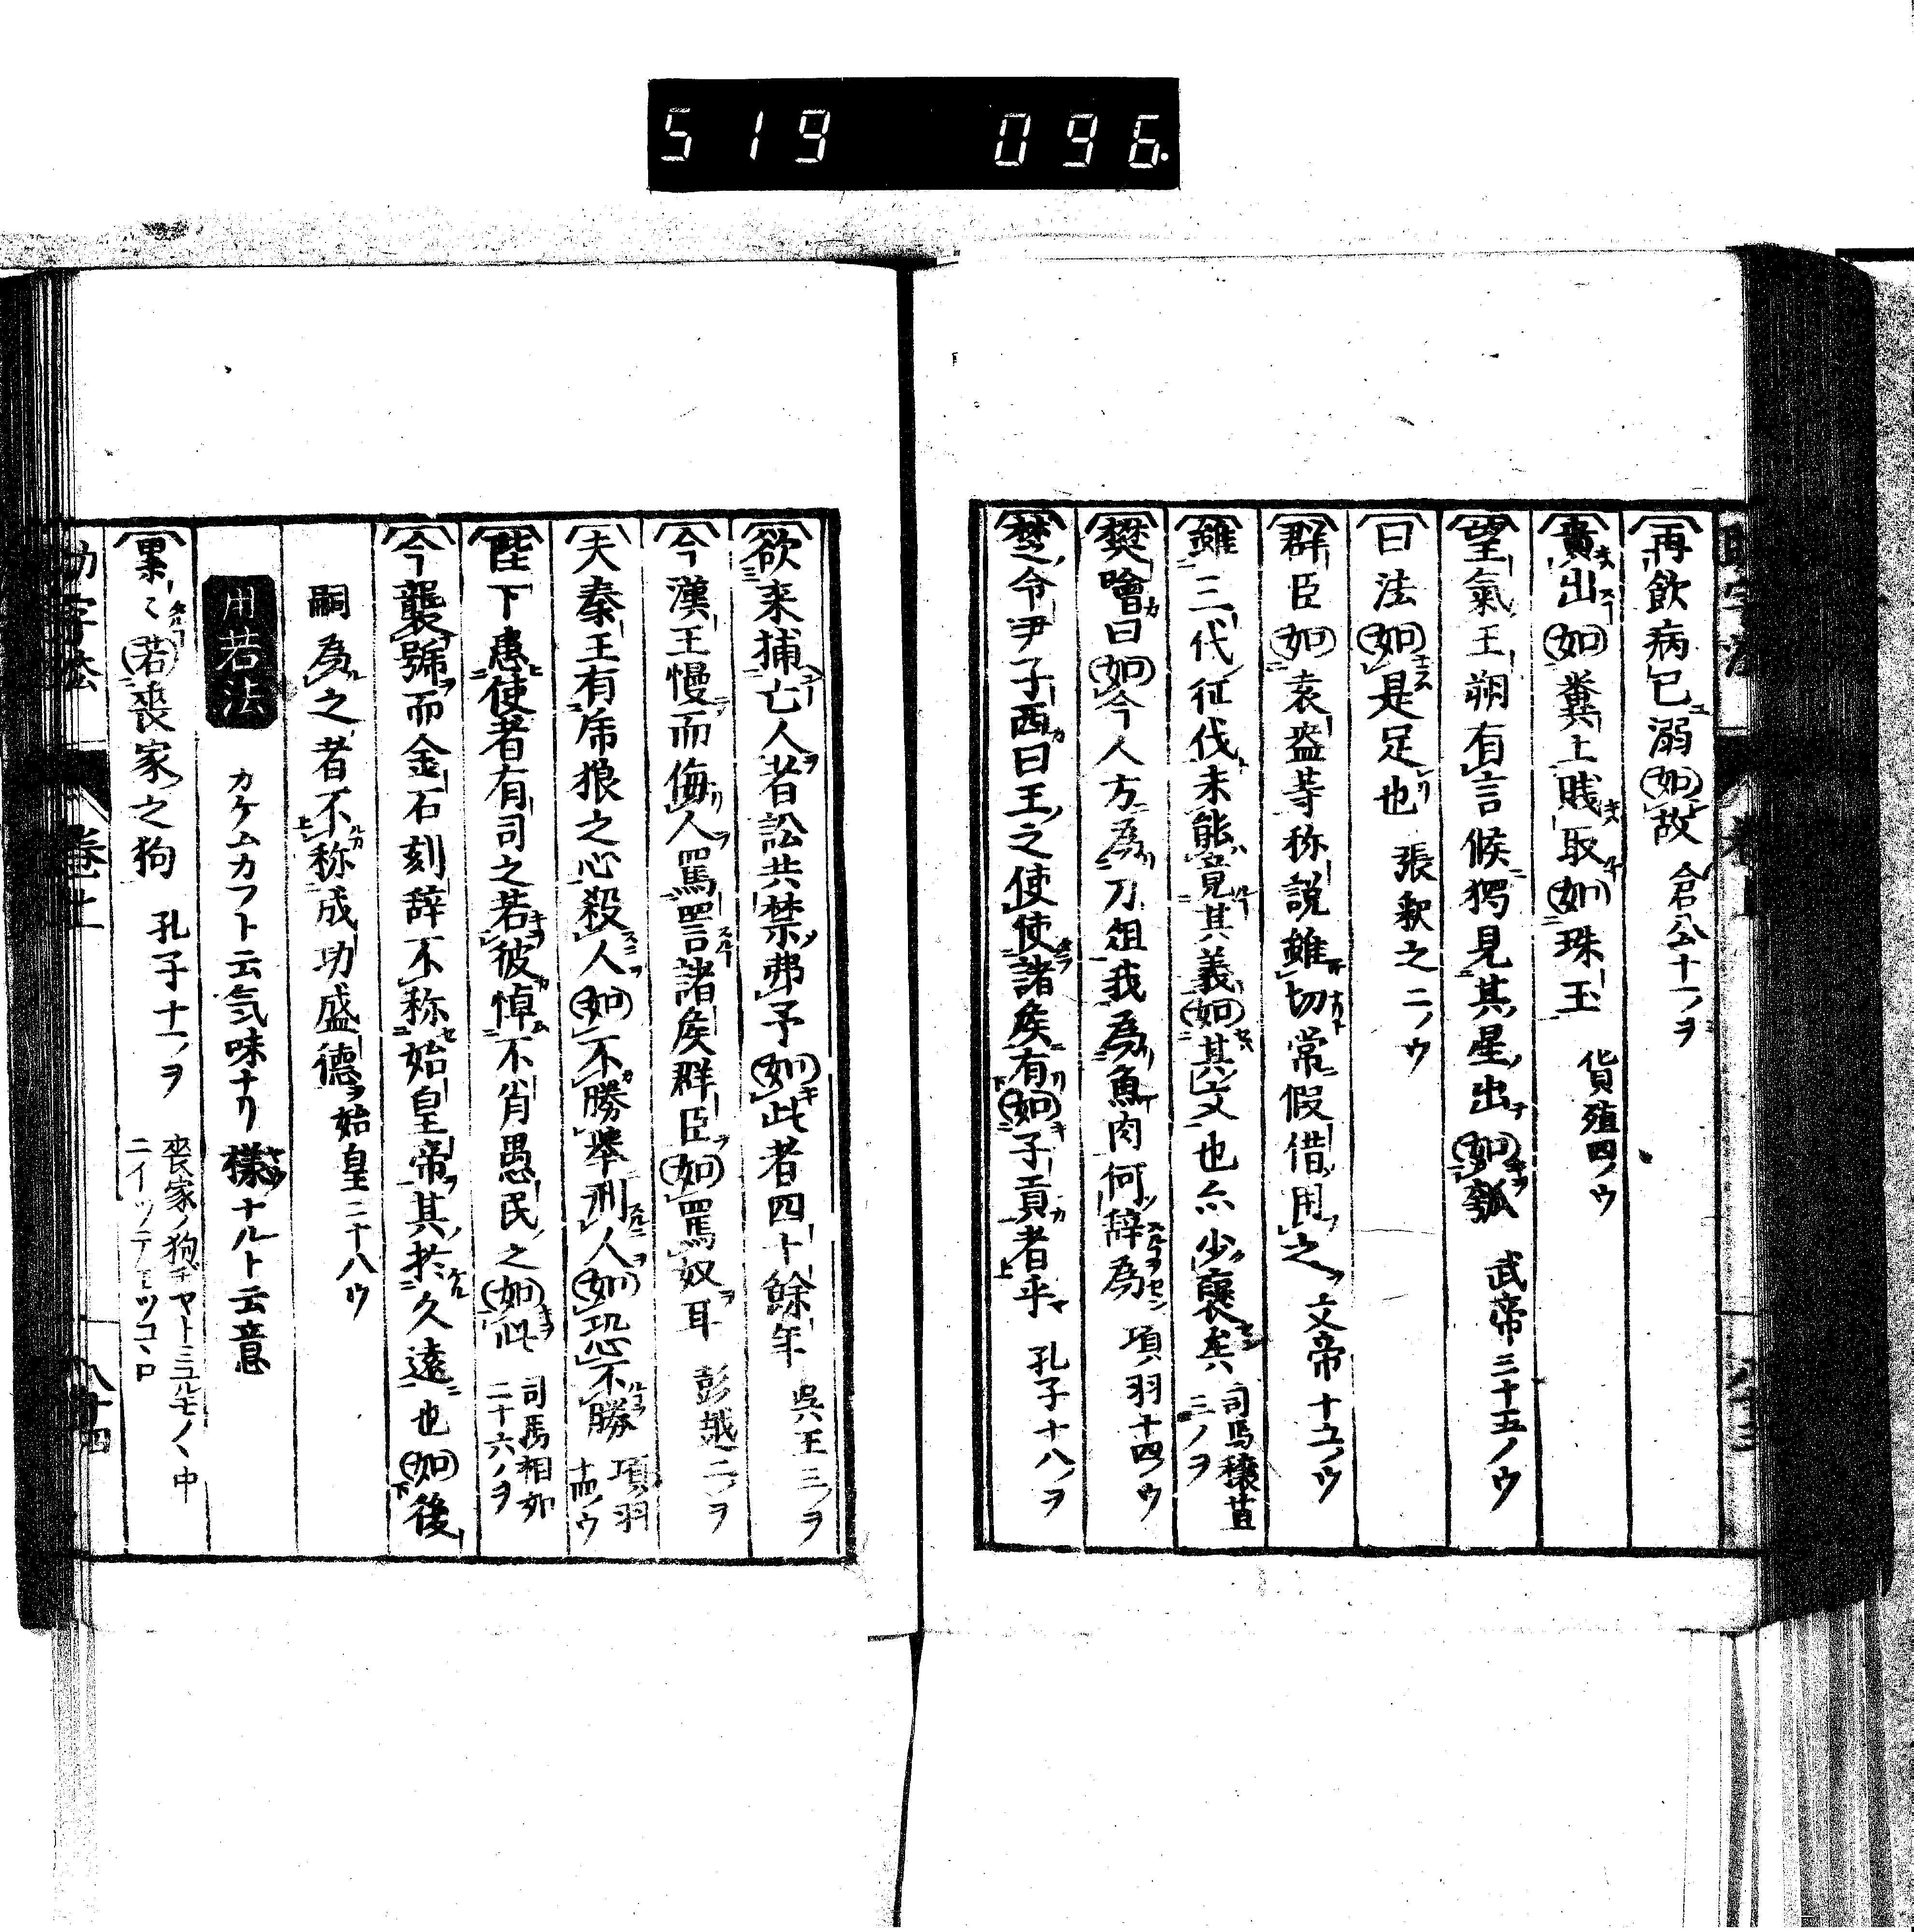 519 096.
再飲病已溺如故 倉公十一ノヲ
貴出如糞土賤取如珠玉 貨殖四ノウ
望氣王朔有言候獨見其星出如瓠 武帝三十五ノウ
曰法如是足也 張釈之二ノウ
群臣如袁盎等称説雖切常假借用之 文帝十五ノウ
雖三代征伐未能竟其義如其文也亦少褒矣 司馬穰苴三ノヲ
樊噲曰如今人方為刀俎我為魚肉何辞為 項羽十四ノウ
楚令尹子西曰王之使使諸侯有如子貢者乎 孔子十八ノヲ
欲来捕亡人者訟共禁弗予如此者四十餘年 呉王三ノヲ
今漢王慢而侮人罵詈諸侯群臣如罵奴耳 彭越二ノヲ
夫秦王有虎狼之心殺人如不勝挙刑人如恐不勝 項羽十四ノウ
陛下患使者有司之若彼悼不肖愚民之如此 司馬相如二十六ノヲ
今襲号而金石刻辞不称始皇帝其於久遠也如後
嗣為之者不称成功盛徳 始皇二十八ウ
用若法 カケムカフト云気味ナリ 様ナルト云意
累々若喪家之狗 孔子十一ノヲ 喪家ノ狗ヂヤトミユルモノヽ中
ニイツテモツコヽロ
助字法 巻上 八十四